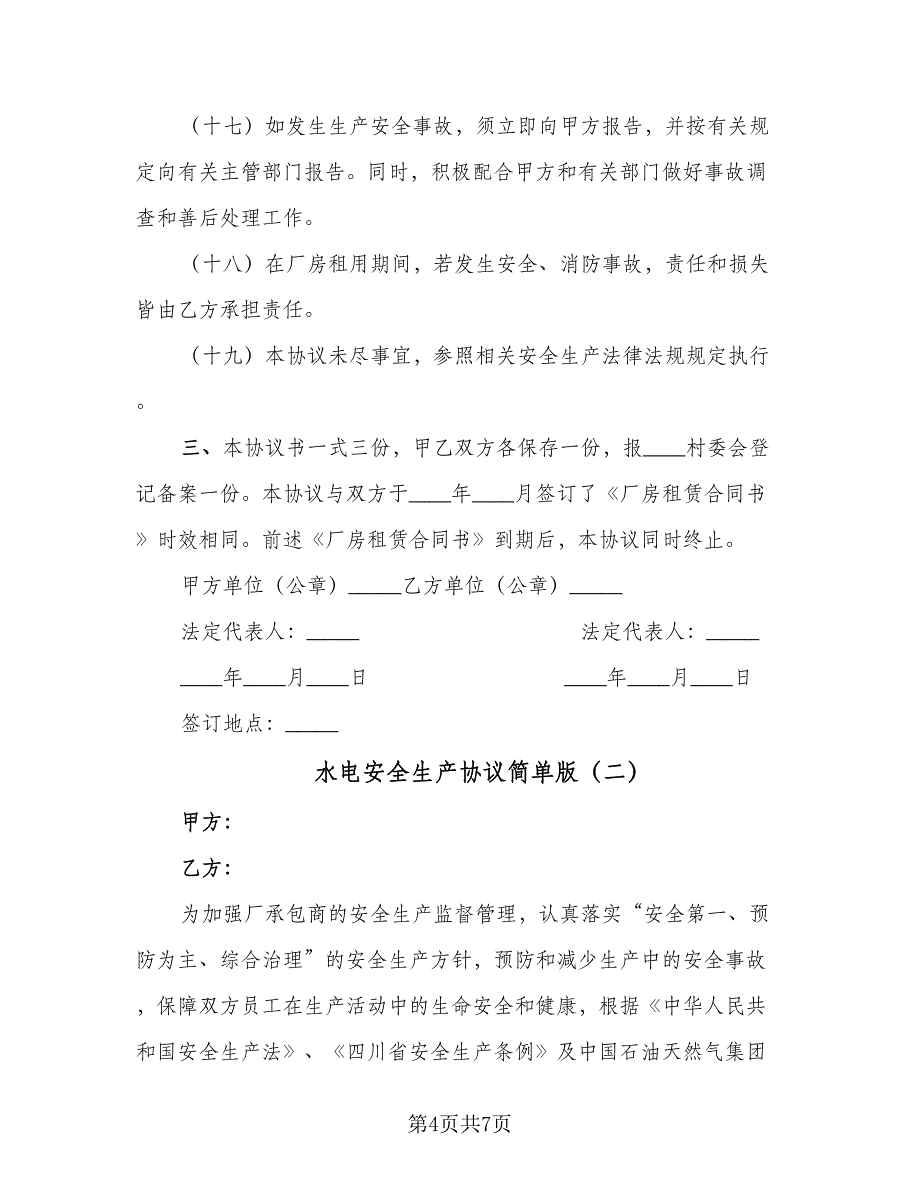 （十七）如发生生产安全事故，须立即向甲方报告，并按有关规
定向有关主管部门报告。同时，积极配合甲方和有关部门做好事故调
查和善后处理工作。
（十八）在厂房租用期间，若发生安全、消防事故，责任和损失
皆由乙方承担责任。
（十九）本协议未尽事宜，参照相关安全生产法律法规规定执行
。
三、本协议书一式三份，甲乙双方各保存一份，报____村委会登
记备案一份。本协议与双方于____年____月签订了《厂房租赁合同书
》时效相同。前述《厂房租赁合同书》到期后，本协议同时终止。
甲方单位（公章）_____乙方单位（公章）_____
法定代表人：_____ 法定代表人：_____
____年____月____日 ____年____月____日
签订地点：_____
水电安全生产协议简单版（二）
甲方：
乙方：
为加强厂承包商的安全生产监督管理，认真落实“安全第一、预
防为主、综合治理”的安全生产方针，预防和减少生产中的安全事故
，保障双方员工在生产活动中的生命安全和健康，根据《中华人民共
和国安全生产法》、《四川省安全生产条例》及中国石油天然气集团
第4页共7页